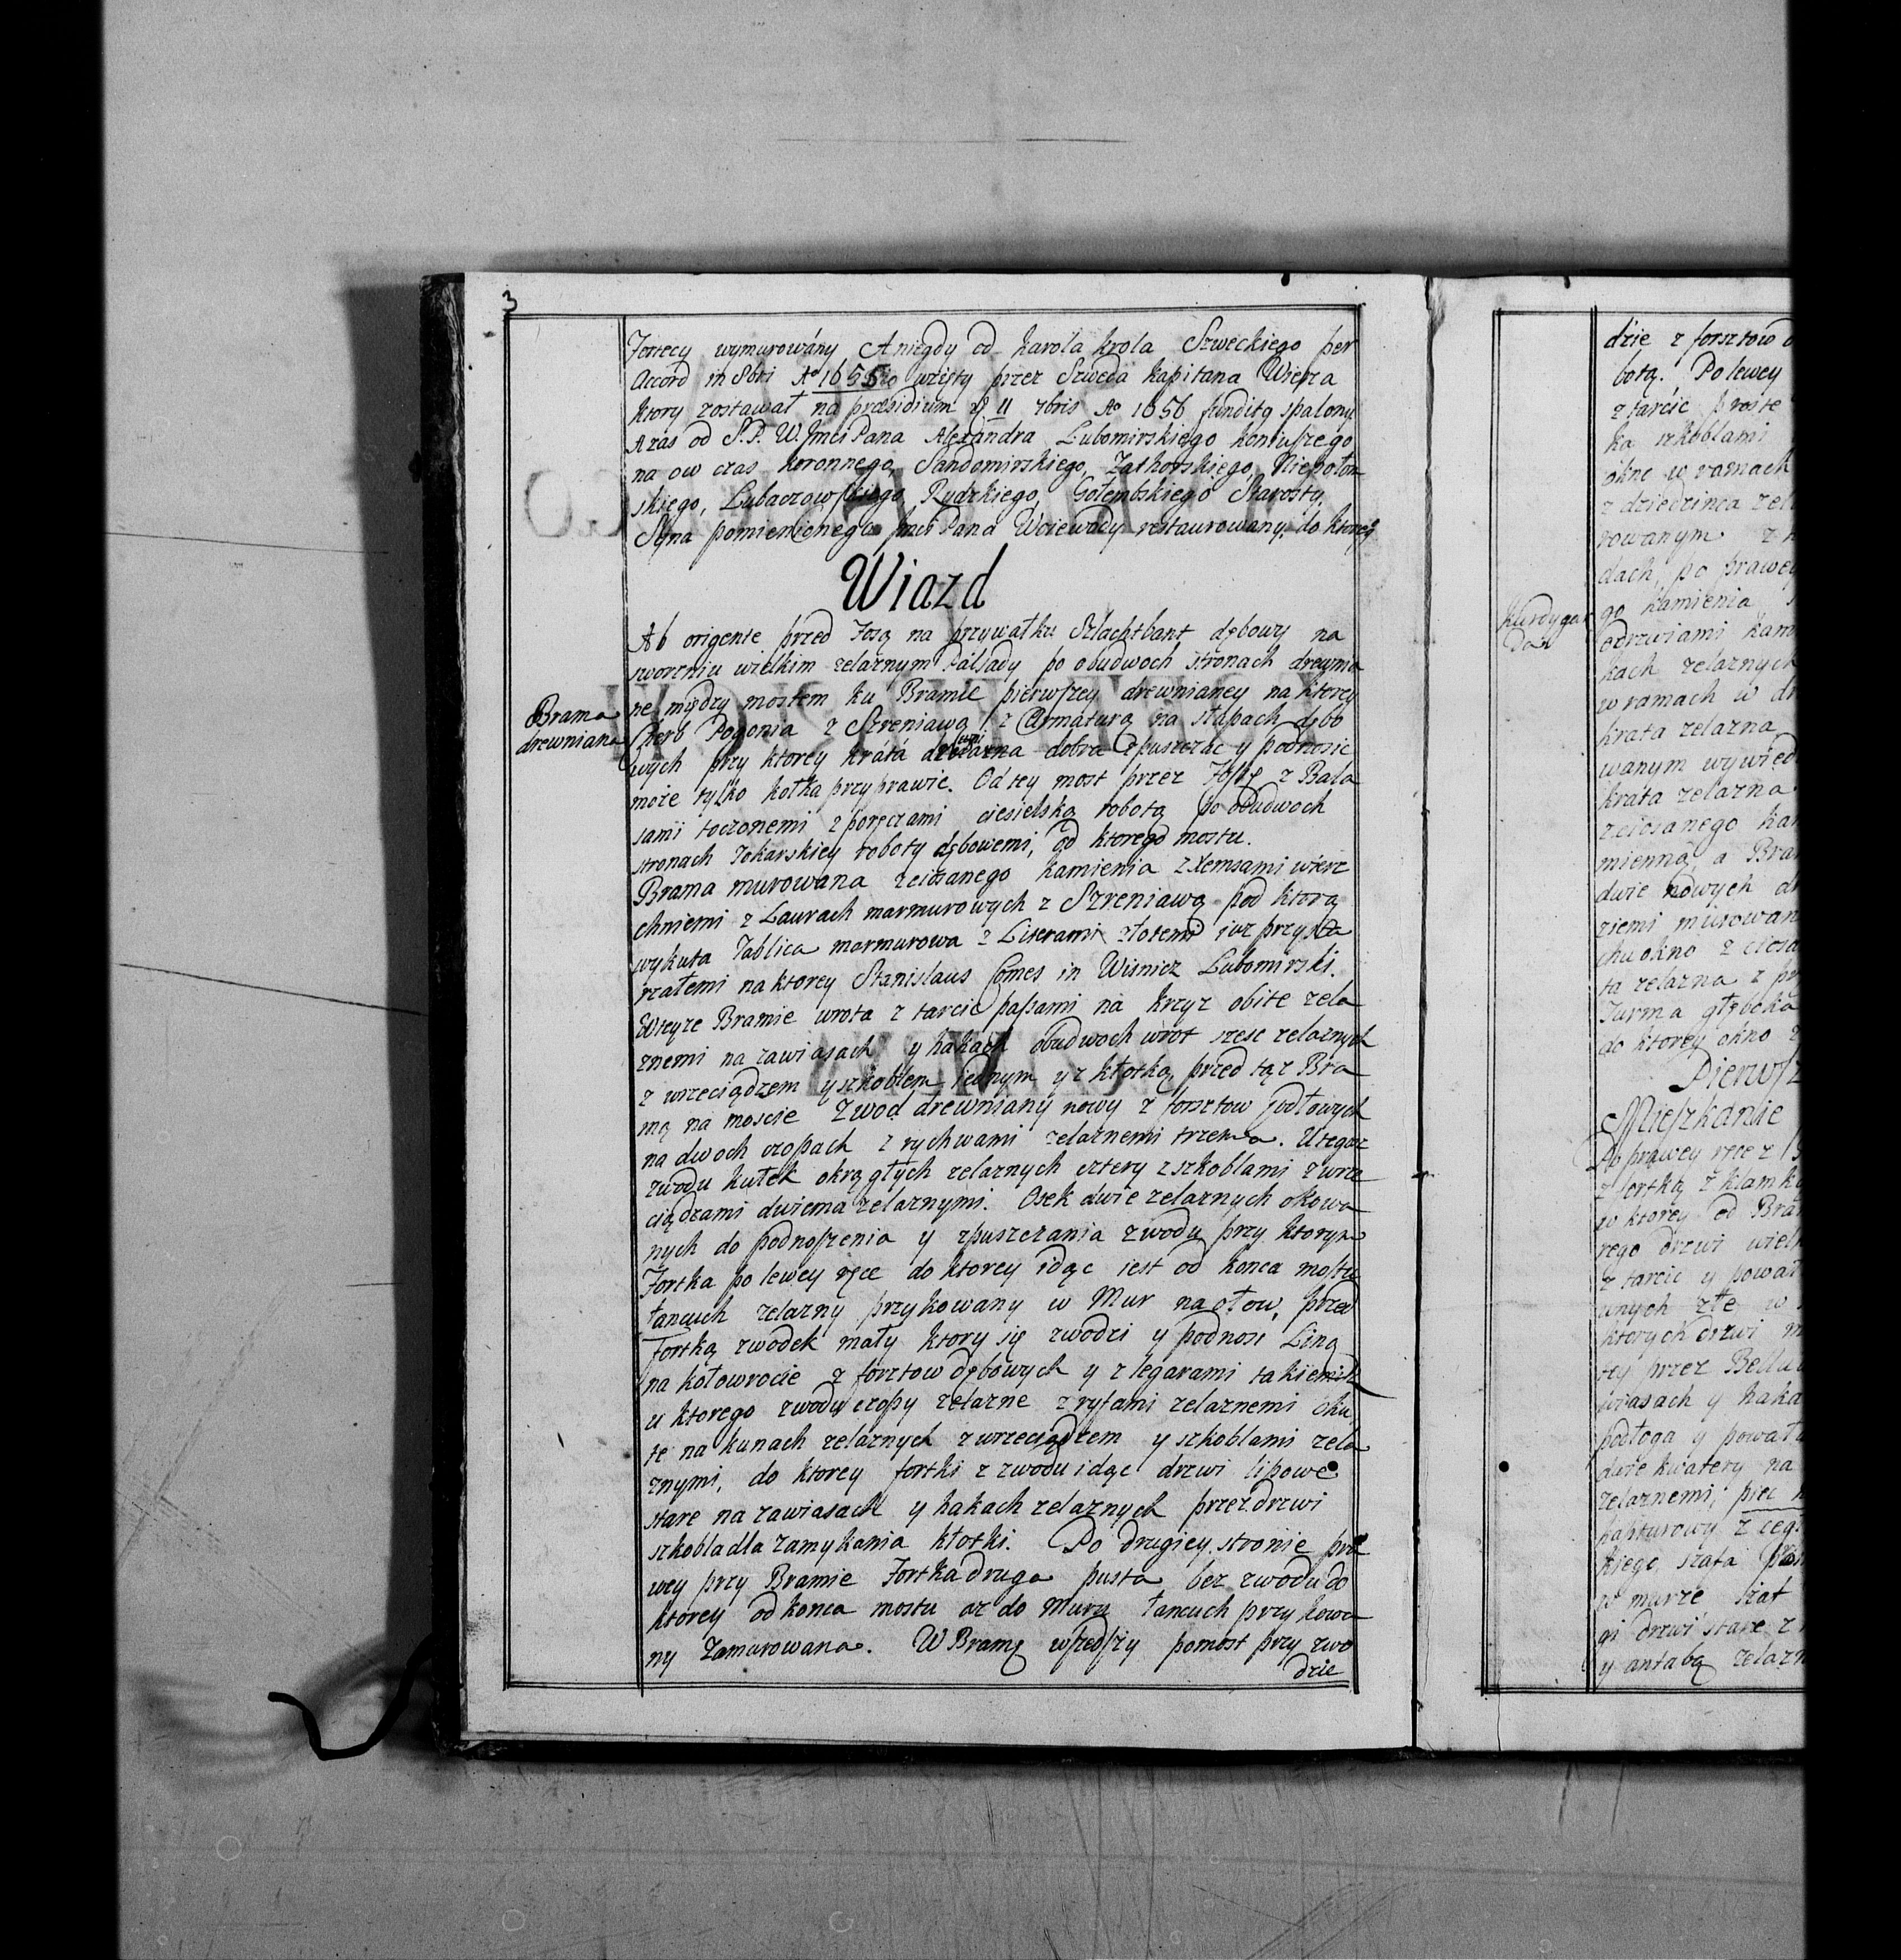 3
Fortecy wymurowány A niegdy od karola krola Szweckiego per
Accord in 8bri Aº 1655to wzięty przez Szweda kapitana Wierza
ktory zostawał na præsidium d. 11 7bris Aº 1656 funditq spalony
A zas od S.P. W. Jmci Pana Alexandra Lubomirskiego koniuszego
na ow czas koronnego, Sandomirskiego, Zathorskiego, Niepołom
skiego, Lubaczowskiego, Rydzkiego, Gołembskiego Starosty,
Syna pomienionego Jmci Pana Woiewody restaurowany. do ktorej
Wiazd
Ab origente przed Fosą na przywałku Szlachtbant dębowy na
sworzniu wielkim zelaznym Palsady po obudwoch stronach drewnia
ne między mostem ku Bramie pierwszey drewnianey na ktorey
Brama
drewniana
herb Pogonia z Szreniawą z Armaturą na słupach dębo
wych przy ktorey kráta zelazna dobra zpuszczac y podnosic
może tylko kołka przyprawic. Od tey most przez Fossę z Bala
sami toczonemi z poręczami ciesielską robotą po obudwoch
stronach Tokarskiey roboty dębowemi, od ktorego mostu.
Brama murowana z ciosanego kamienia z Xemsami wierz
chniemi z Laurach marmurowych z Szreniawą pod ktorą
wykuta Tablica marmurowa z Literami złotemi iuz przysta
rzałemi na ktorey Stanislaus Comes in Wisnicz Lubomirski.
W teyze Bramie wrota z tarcic passami na krzyz obite zela
znemi na zawiasach y hakach obudwoch wrot szesc zelaznych
z wrzeciądzem y szkoblem iednym y z kłotką, przed tąz Bra
mą na moscie Zwod drewniany nowy z forsztow jodłowych
na dwoch czopach z rychwami zelaznemi trzema. U tegoz
zwodu kułek okrągłych zelaznych cztery z szkoblami z wrze
ciądzami dwiema zelaznymi. Osek dwie zelaznych okowa
nych do podnoszenia y zpuszczania zwodu przy ktorym
Fortka po lewey ręce do ktorey idąc iest od konca mostu
łancuch zelazny przykowany w Mur na ołow, przed
Fortką zwodek mały ktory się zwodzi y podnosi Liną
na kołowrocie z forztow dębowych y z legarami takiemisz
u ktorego zwodu czopy zelazne z ryfami zelaznemi oku
te na kunach zelaznych z wrzeciądzem y szkoblami zela
znymi, do ktorey fortki z zwodu idąc drzwi lipowe
stare na zawiasach y hakach zelaznych przez drzwi
szkobla dla zamykania kłotki. Po drugiey stronie pra
wey przy Bramie Fortka druga pusta bez zwodu do
ktorey od konca mostu az do Muru łancuch przykowa
ny Zamurowana. W Bramę wszedszy pomost przy zwo
dzie
kurdygar
da
dzie z forsztow
botą. Po lewey
z tarcic proste
ka szkoblami
okno w ramach
z dziedzinca
rowanym
dach, po prawey
go kamienia
odrzwiami
kach zelaznych
w ramach w
krata zelazna
wanym
krata zelazna
z ciosanego
mienną, a
dwie nowych
ziemi
chu okno z
ta zelazna z
Turma głęboka
do ktorey okno
Mieszkanie
Po prawey ręce z
z fortką z klamką
w ktorey od
rego drzwi
z tarcic y
wnych złe w
ktorych drzwi
tey przez
wiasach y
podłoga y
dwie kwatery na
zelaznemi, piec
kapturowy z
kiego, szafa
w murze szaf
gi drzwi stare z
y antabą